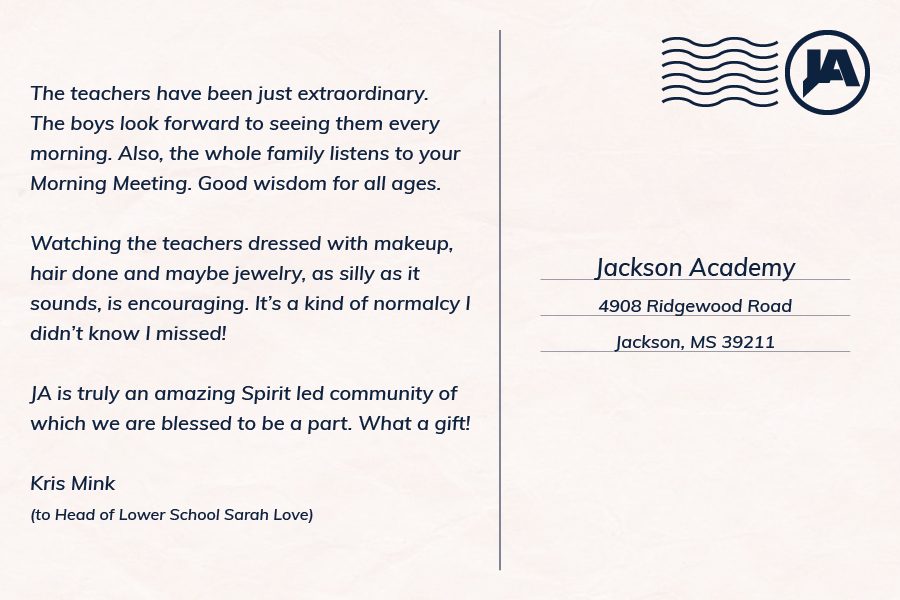 The teachers have been just extraordinary.
The boys look forward to seeing them every
morning. Also, the whole family listens to your
Morning Meeting. Good wisdom for all ages.
Watching the teachers dressed with makeup,
hair done and maybe jewelry, as silly as it
sounds, is encouraging. It’s a kind of normalcy I
didn’t know I missed!
JA is truly an amazing Spirit led community of
which we are blessed to be a part. What a gift!
Kris Mink
(to Head of Lower School Sarah Love)
JA
Jackson Academy
4908 Ridgewood Road
Jackson, MS 39211